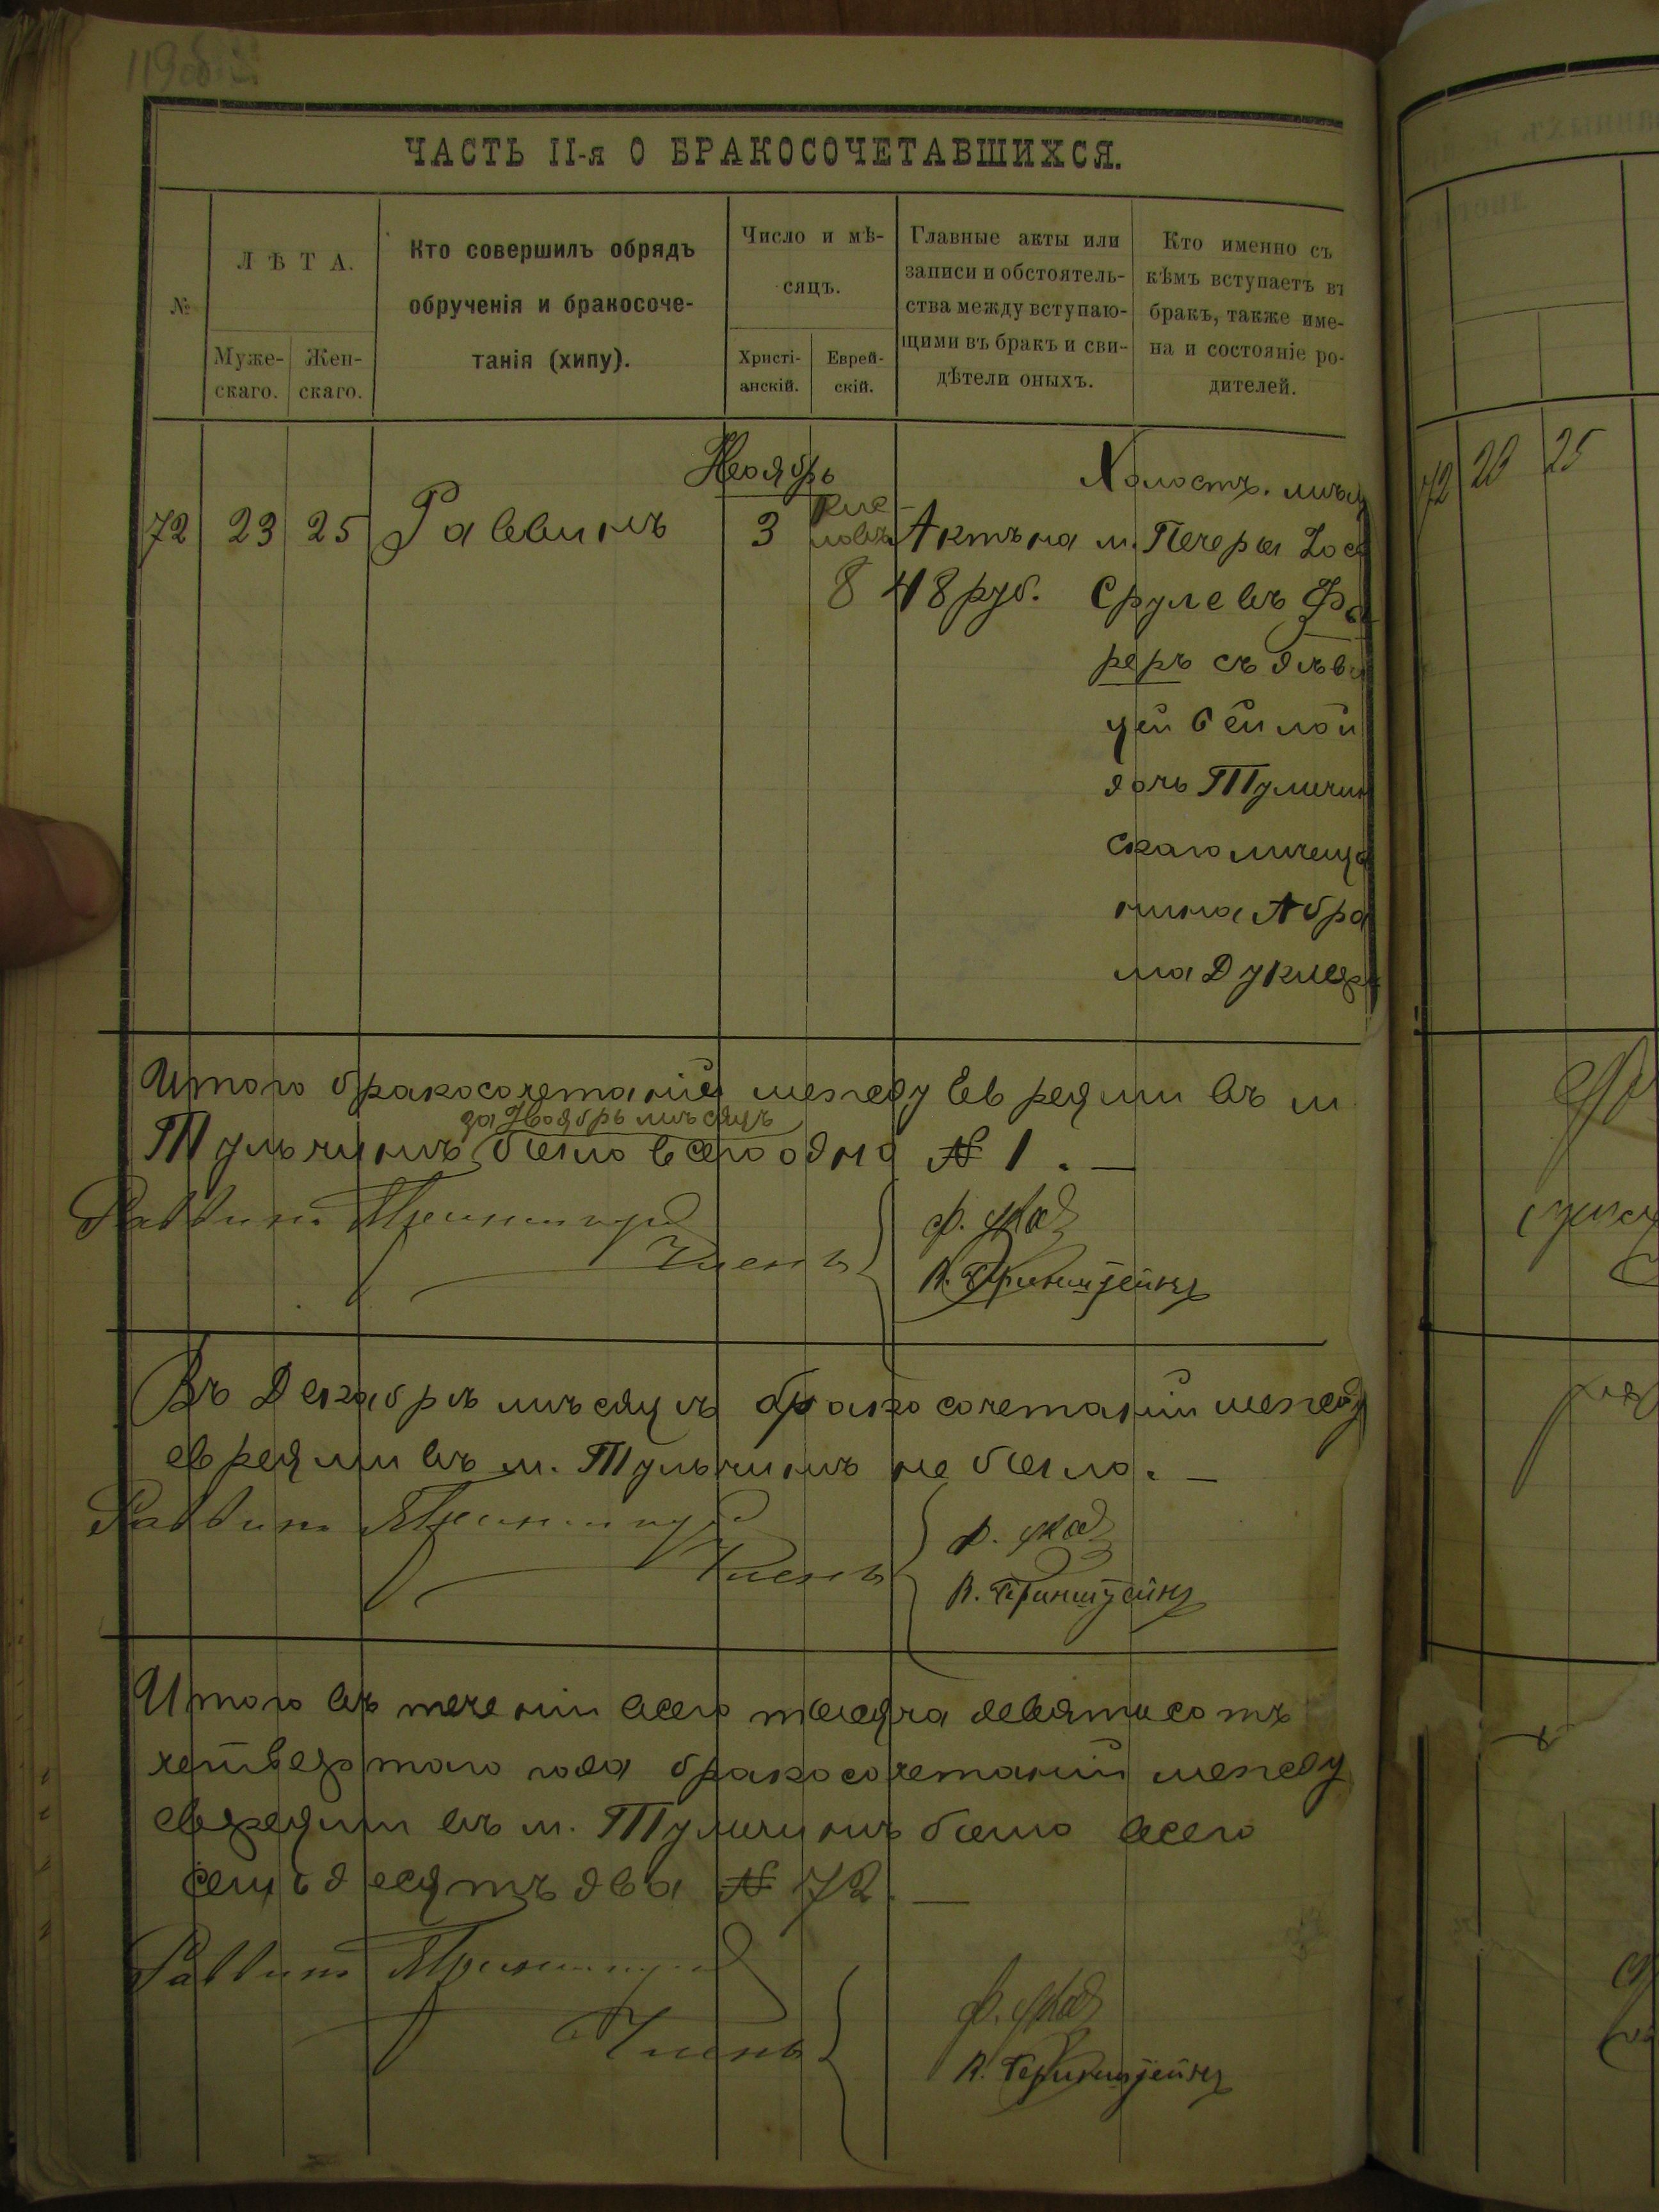 119об.
ЧАСТЬ II-я О БРАКОСОЧЕТАВШИХСЯ.
№
ЛѢТА.
Муже-
скаго.
Жен-
скаго.
Кто совершилъ обрядъ
обрученія и бракосоче-
танія (хипу).
Число и мѣ-
сяцъ.
Христі-
анскій.
Еврей-
скій.
Главные акты или
записи и обстоятель-
ства между вступаю-
щими въ бракъ и сви-
дѣтели оныхъ.
Кто именно съ
кѣмъ вступаетъ въ
бракъ, также име-
на и состояніе ро-
дителей.
Ноябрь
72 23 25 Раввинъ 3
Кис-
левъ
8
Актъ на
48 руб.
Холостъ. мѣщ
м. Печеры Іос
Срулевъ Фе
реръ съ дѣви
цей Бейлой
дочь Тульчин
скаго мѣща
нина Абра
ма Дукле
Итого бракосочетаній между Евреями въ м.
за Ноябрь мѣсяцъ
Тульчинѣ было всего одно № 1. —
Раввинъ
Членъ
В. Гринштейнъ
Въ Декабрѣ мѣсяцѣ бракосочетаній между
евреями въ м. Тульчинѣ не было. —
Раввинъ
Членъ
В. Гринштейнъ
Итого въ теченіи всего тысяча девятисотъ
четвертаго года бракосочетаній между
евреями въ м. Тульчинѣ было всего
семьдесятъ два № 72. —
Раввинъ
Членъ
В. Гринштейнъ
72 20 25